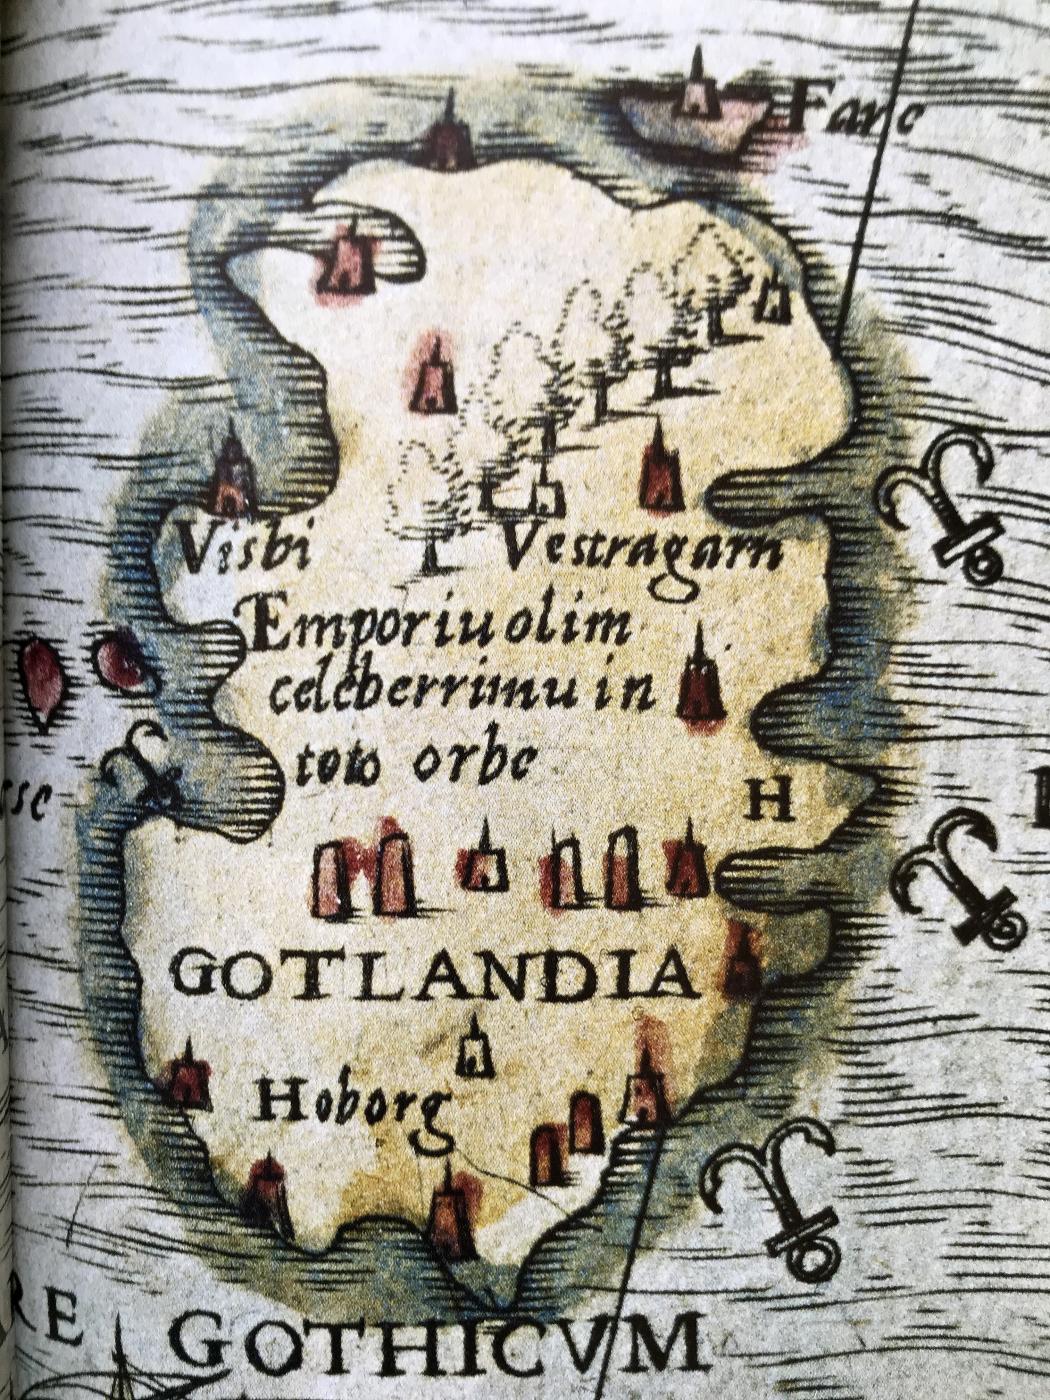 Fare
Visbi
Vestragarn
Emporiu olim
celeberrimu in
toto orbe
H
GOTLANDIA
Hoborg
RE GOTHICVM